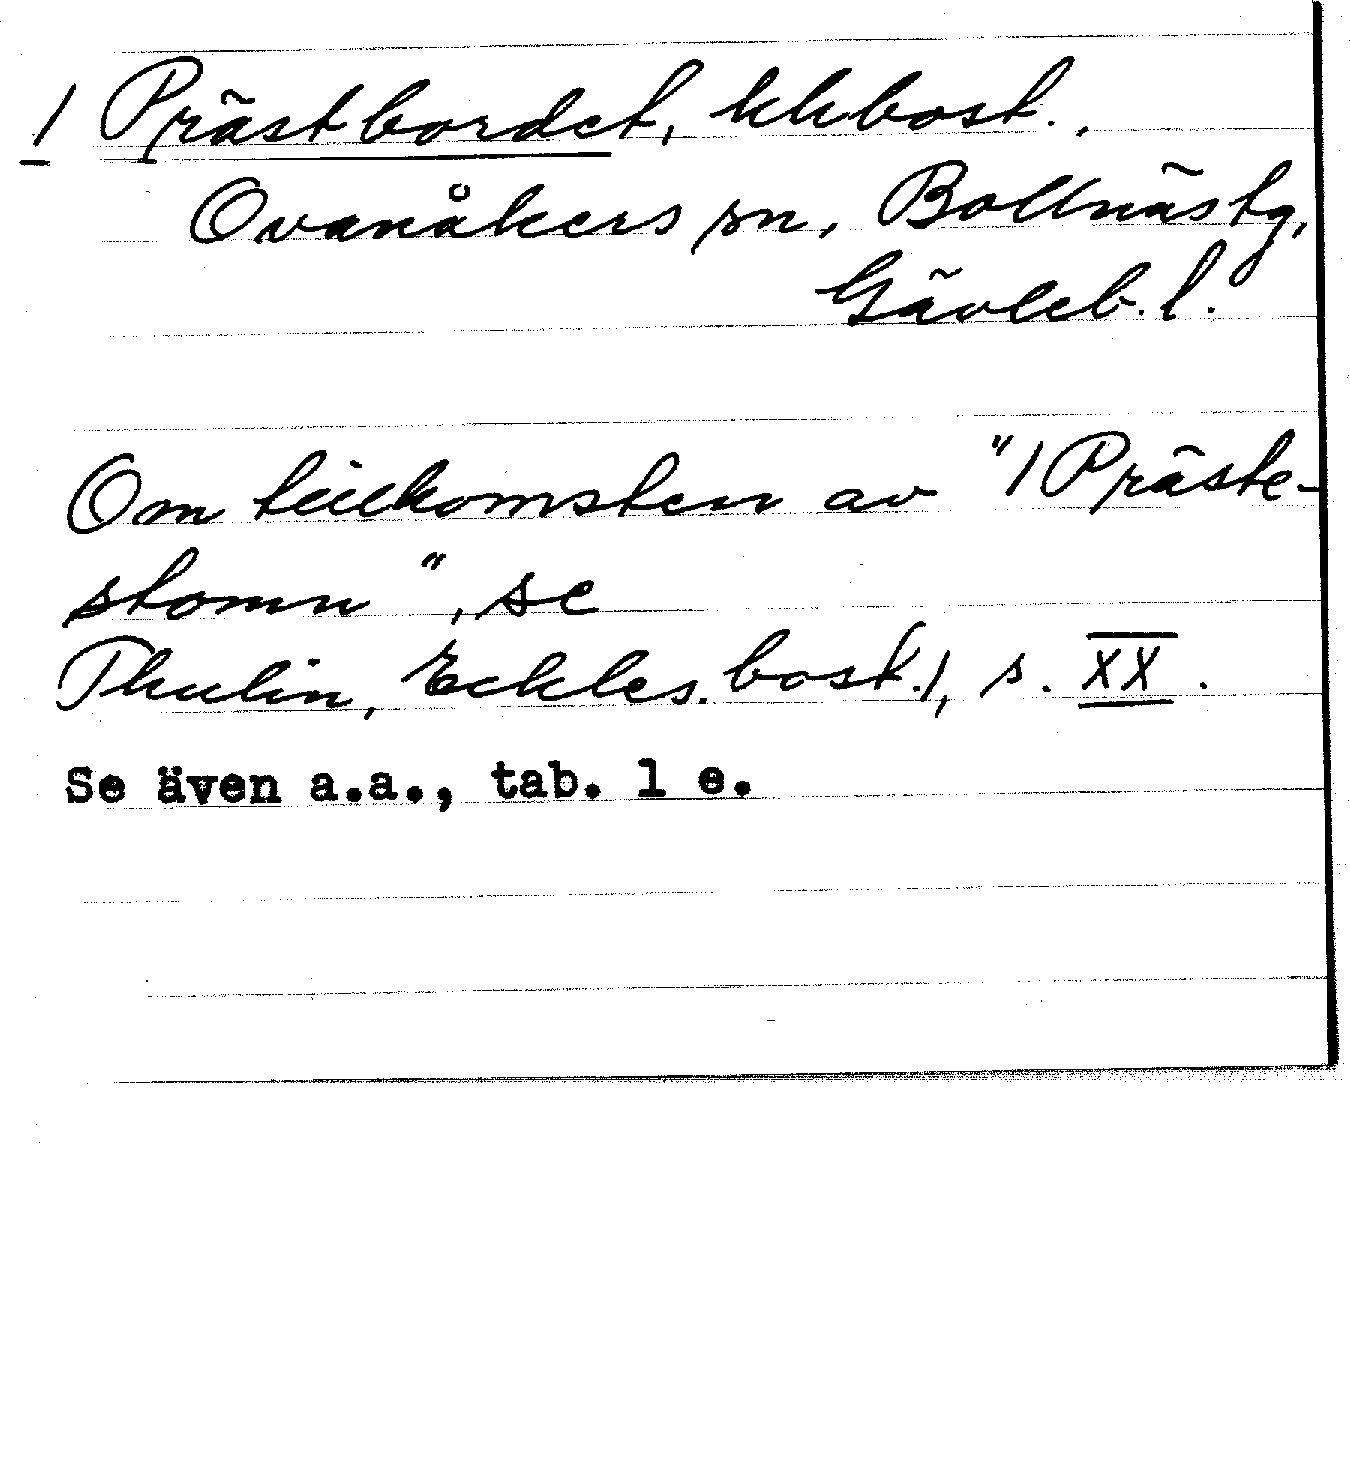 1 Prästbordet, khbost.,
Ovanåkers sn, Bollnästg,
Gävleb. l.
Om tillkomsten av "1 Präste-
stomn", se
Thulin, Eckles. bost. 1, s. XX.
Se även a.a., tab. 1 e.